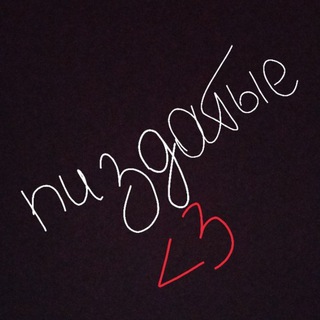 пиздатые
<3